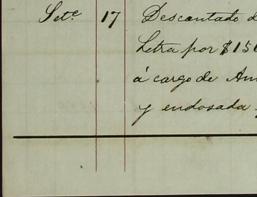 Set.e 17 Descontado d
Letra por $15
á cargo de Am
y endosada